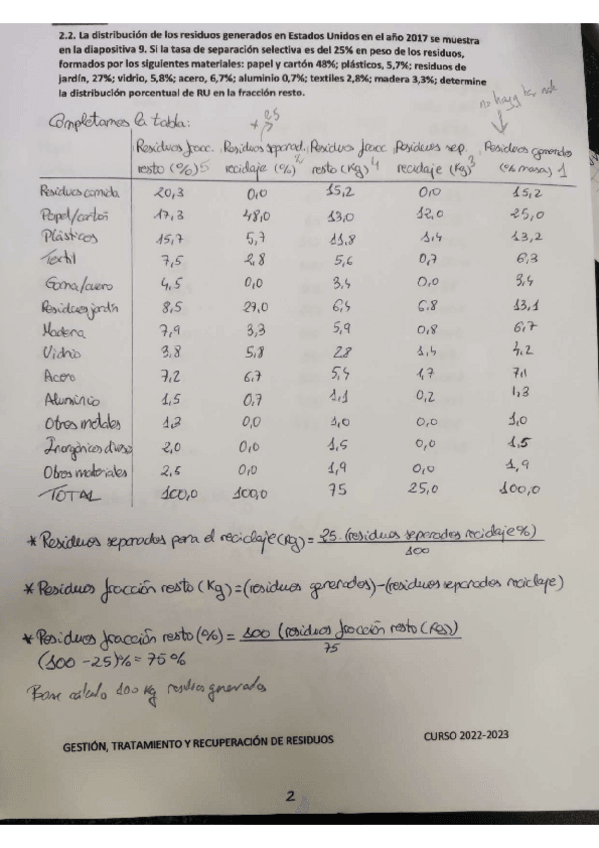 2.2. La distribución de los residuos generados en Estados Unidos en el año 2017 se muestra
en la diapositiva 9. Si la tasa de separación selectiva es del 25% en peso de los residuos,
formados por los siguientes materiales: papel y cartón 48%; plásticos, 5,7%; residuos de
jardín, 27%; vidrio, 5,8%; acero, 6,7%; aluminio 0,7%; textiles 2,8%; madera 3,3%; determine
la distribución porcentual de RU en la fracción resto.
Completamos la tabla:
25
no hay q
Residuos fracc. resto (%) 5 Residuos separad. reciclaje (%) 2 Residuos fracc resto (Kg) 4 Residuos sep. reciclaje (Kg) 3 Residuos generados (% masa) 1
Residuos comida 20,3 0,0 15,2 0,0 15,2
Papel/cartón 17,3 48,0 13,0 12,0 25,0
Plásticos 15,7 5,7 11,8 1,4 13,2
Textil 7,5 2,8 5,6 0,7 6,3
Goma/cuero 4,5 0,0 3,4 0,0 3,4
Residuos jardín 8,5 27,0 6,4 6,8 13,1
Madera 7,9 3,3 5,9 0,8 6,7
Vidrio 3,8 5,8 28 1,4 4,2
Acero 7,2 6,7 5,4 1,7 7,1
Aluminio 1,5 0,7 1,1 0,2 1,3
Otros metales 1,3 0,0 1,0 0,0 1,0
Inorgánicos diverso 2,0 0,0 1,5 0,0 1,5
Otros materiales 2,6 0,0 1,9 0,0 1,9
TOTAL 100,0 100,0 75 25,0 100,0
* Residuos separados para el reciclaje (Kg) = 25. (residuos separados reciclaje %) / 100
* Residuos fracción resto (Kg) = (residuos generados) - (residuos separados reciclaje)
* Residuos fracción resto (%) = 100 (residuos fracción resto (Kg)) / 75
(100 - 25)% = 75%
Base cálculo 100 Kg residuos generados
GESTIÓN, TRATAMIENTO Y RECUPERACIÓN DE RESIDUOS
CURSO 2022-2023
2